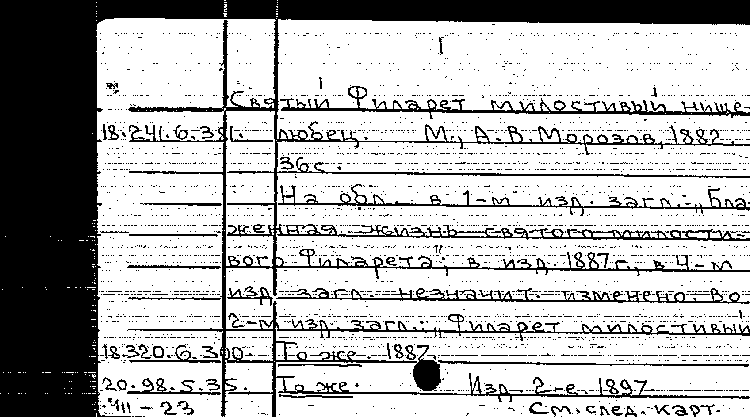 Святый Филарет милостивый нище-
18.241.6.381. любец. М., А.В. Морозов, 1882.
36с.
На обл. в 1-м изд. загл.: „Бла-
женная жизнь святого милости-
вого Филарета"; в изд. 1887г., в 4-м
изд. загл. незначит. изменено. Во
2-м изд. загл.: „Филарет милостивый
18.320.6.300. То же. 1887.
20.98.5.35. То же. Изд. 2-е. 1897
VIII - 23 См. след. карт.